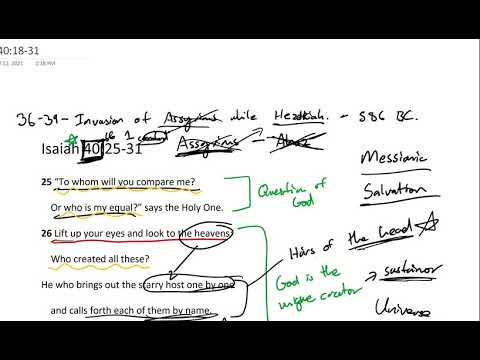 40:18-31
2:18 PM
36-39 - Invasion of Assyrians while Hezekiah - 586 BC.
Isaiah 40:25-31
Assyrians
Messianic
Salvation
25 “To whom will you compare me?
Or who is my equal?” says the Holy One.
Question of
God
26 Lift up your eyes and look to the heavens:
Who created all these?
He who brings out the starry host one by one
and calls forth each of them by name.
Hairs of the head
God is the
unique creator
sustainor
Universe